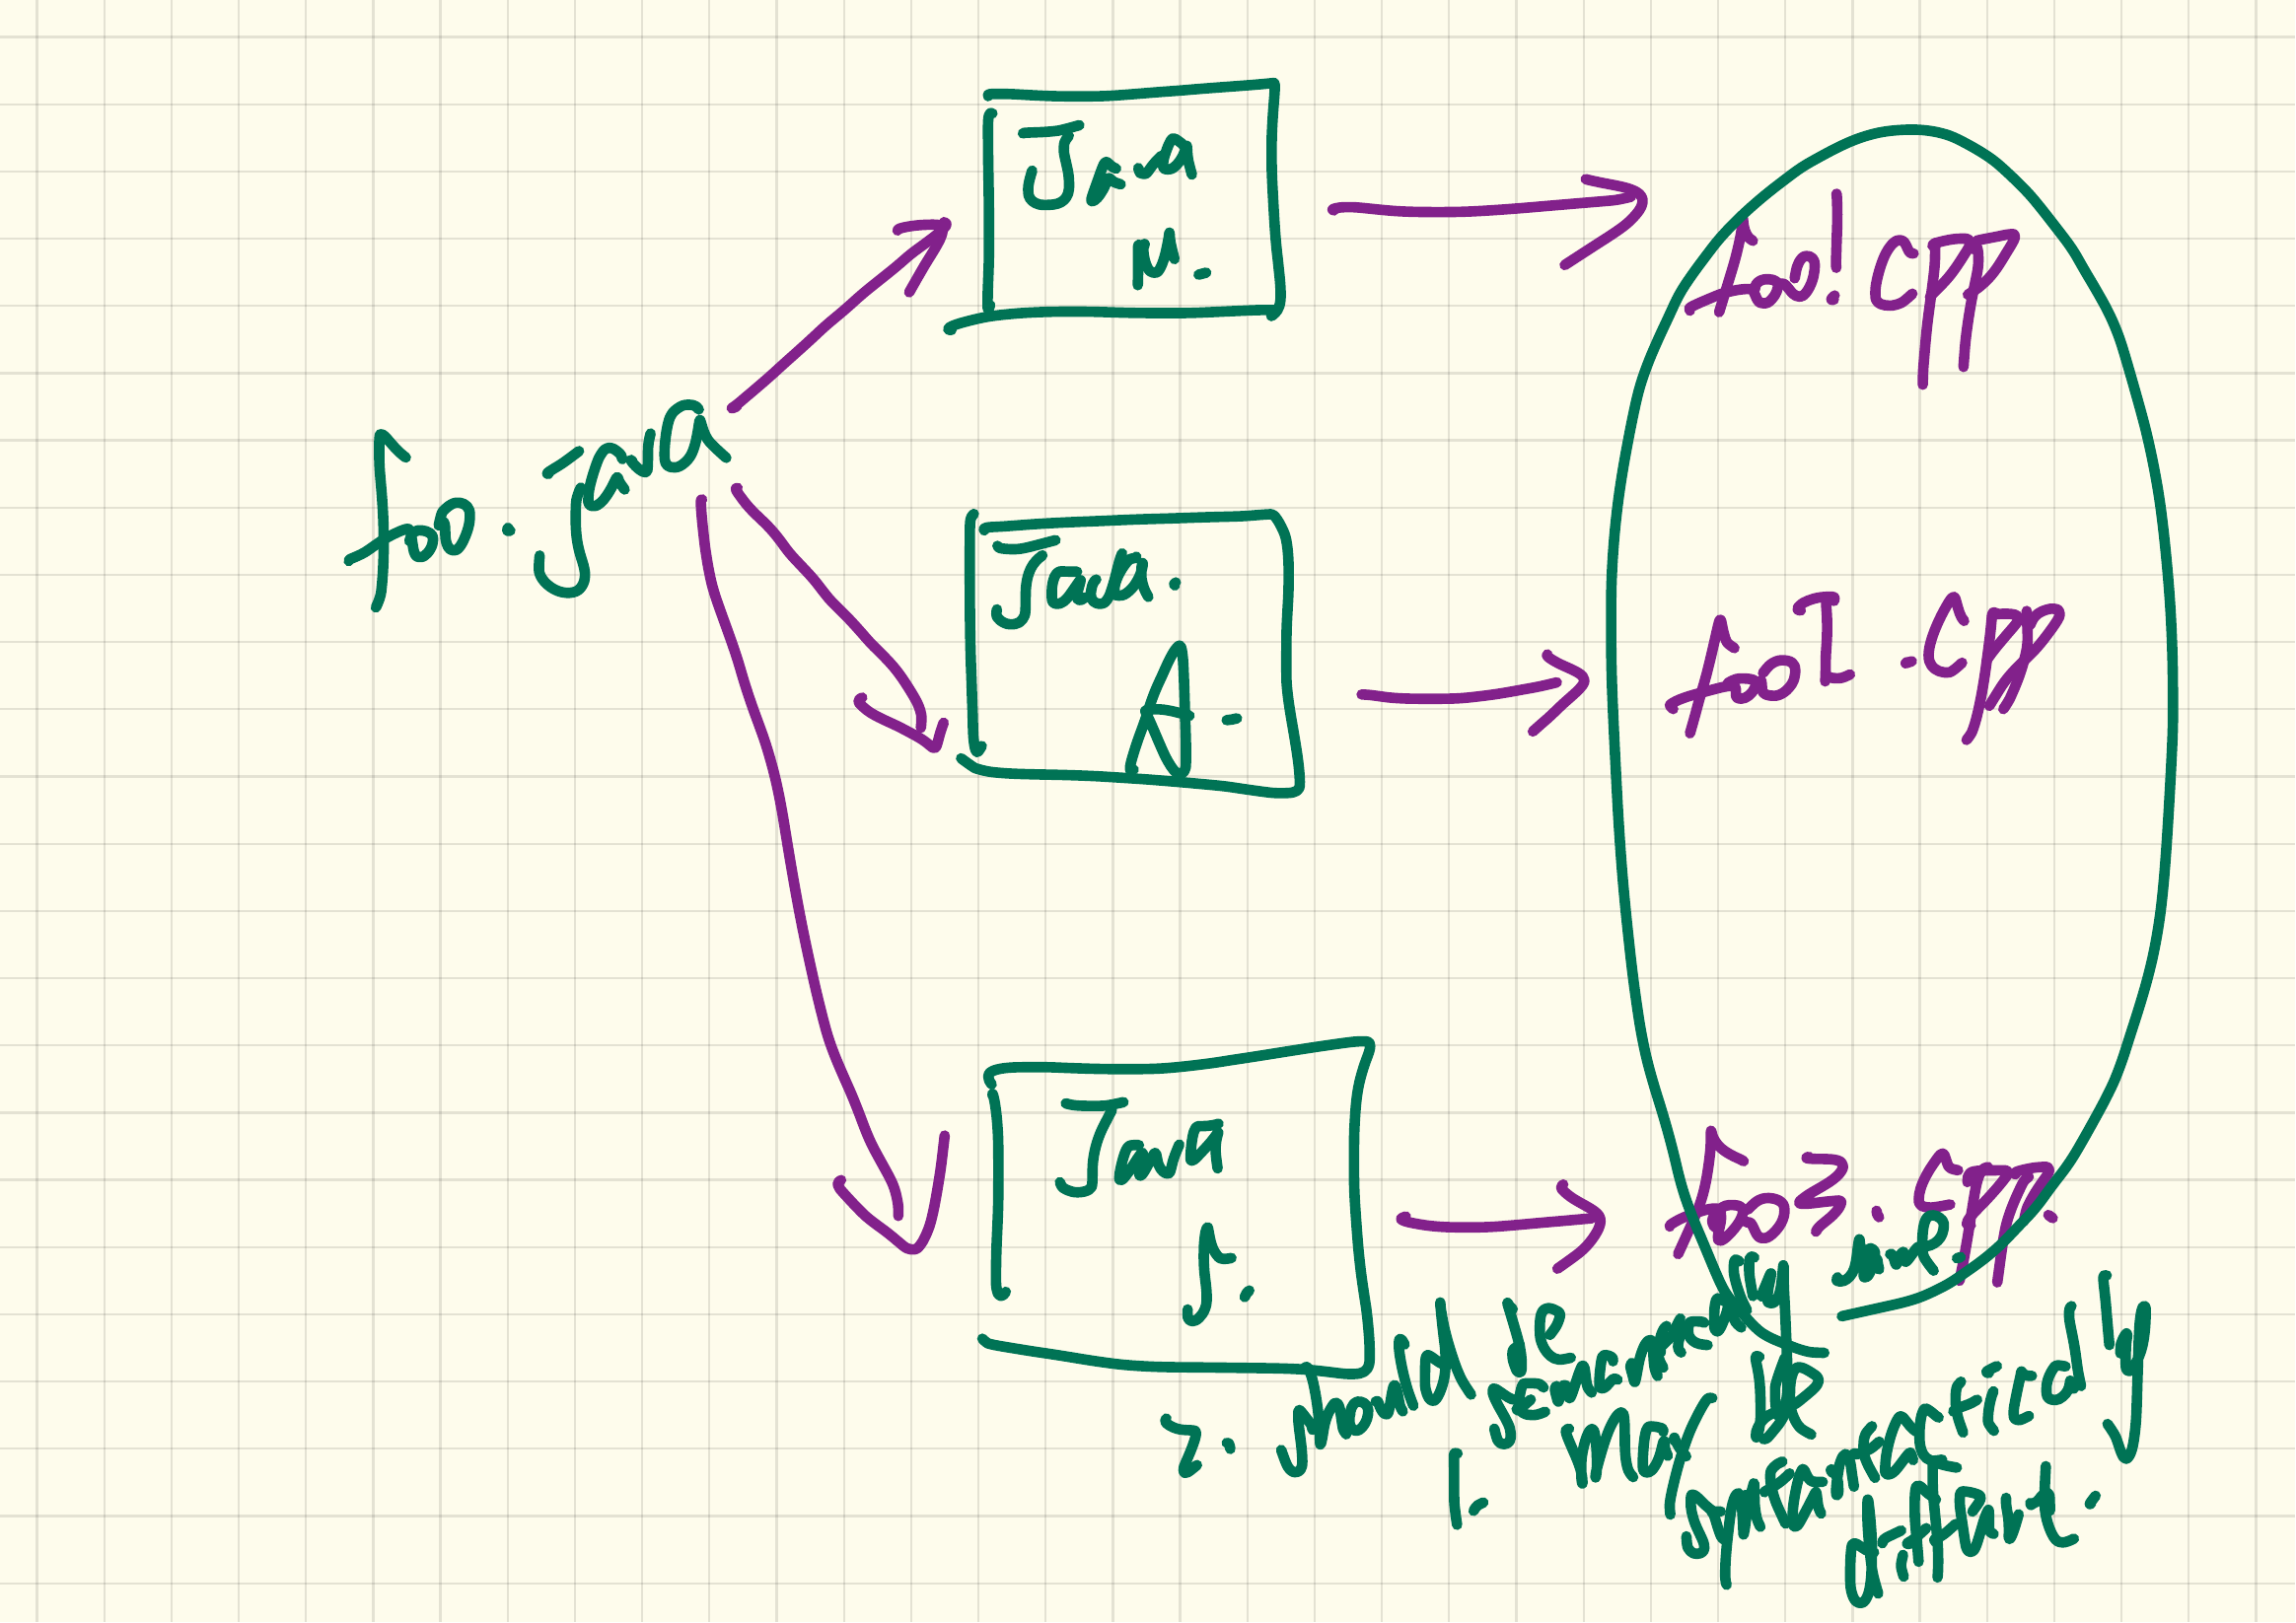 foo.java
Java
M.
foo1.cpp
Java.
A.
foo2.cpp
Java
S.
foo3.cpp.
2. should be semantically same.
1. may be
syntactically
different.